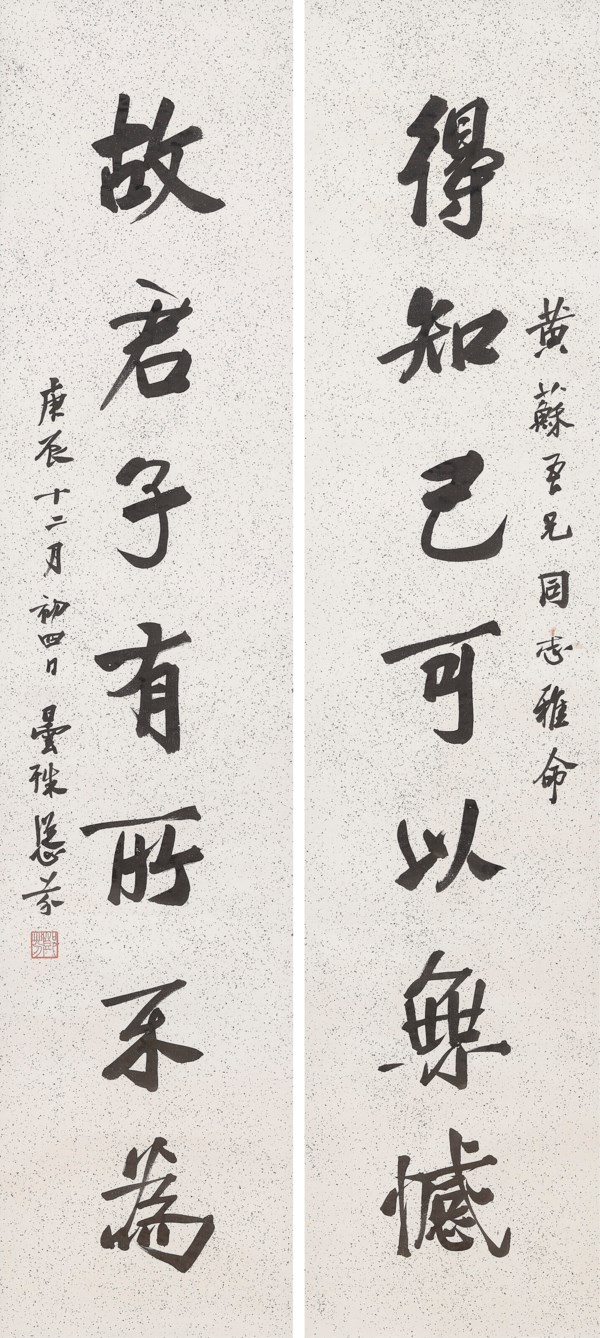 黄蘇吾兄同志雅命
得知己可以無憾
故君子有所不為
庚辰十二月初四日 曇殊